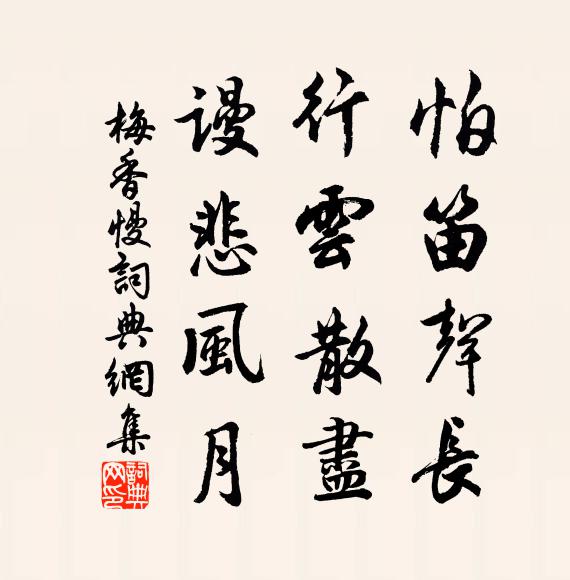 怕笛聲長
行雲散盡
謾悲風月
梅香慢詞典網集
詞典網印